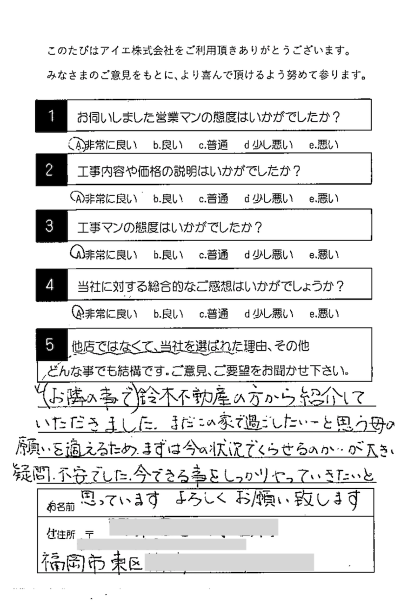 このたびはアイエ株式会社をご利用頂きありがとうございます。
みなさまのご意見をもとに、より喜んで頂けるよう努めて参ります。
1 お伺いしました営業マンの態度はいかがでしたか?
A非常に良い b.良い c.普通 d少し悪い e.悪い
2 工事内容や価格の説明はいかがでしたか?
A非常に良い b.良い c.普通 d少し悪い e.悪い
3 工事マンの態度はいかがでしたか?
A非常に良い b.良い c.普通 d少し悪い e.悪い
4 当社に対する総合的なご感想はいかがでしょうか?
A非常に良い b.良い c.普通 d少し悪い e.悪い
5 他店ではなくて、当社を選ばれた理由、その他
どんな事でも結構です。ご意見、ご要望をお聞かせ下さい。
(お隣の事で)鈴木不動産の方から紹介して
いただきました。まだこの家で過ごしたいーと思う母の
願いを適えるため、まずは今の状況でくらせるのか‥が大きい
疑問・不安でした。今できる事をしっかりやっていきたいと
お名前 思っています よろしく お願い致します
ご住所 〒
福岡市東区